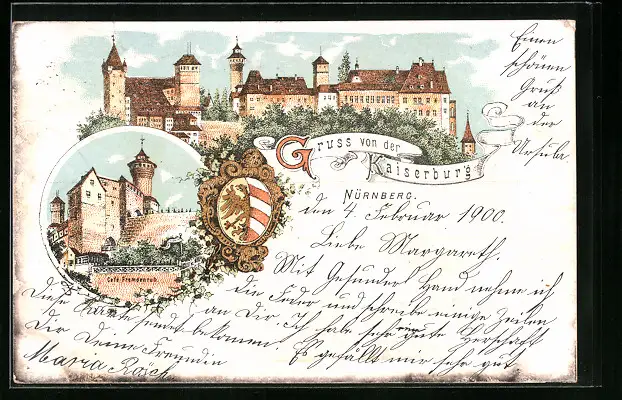 Einen
schönen
Gruß
an
der
Ursula.
Gruss von der
Kaiserburg
NÜRNBERG.
den 4 Februar 1900.
Liebe Margareth.
Mit Gesunder Hand nehme ich
die Feder und schreibe einige Zeilen
an Dir. Ich habe sehr gute Herschaft
Es gefällt mir sehr gut
Café Fremdenruh
Diese Karte sendet
der Deine Freundin
Maria Rösch